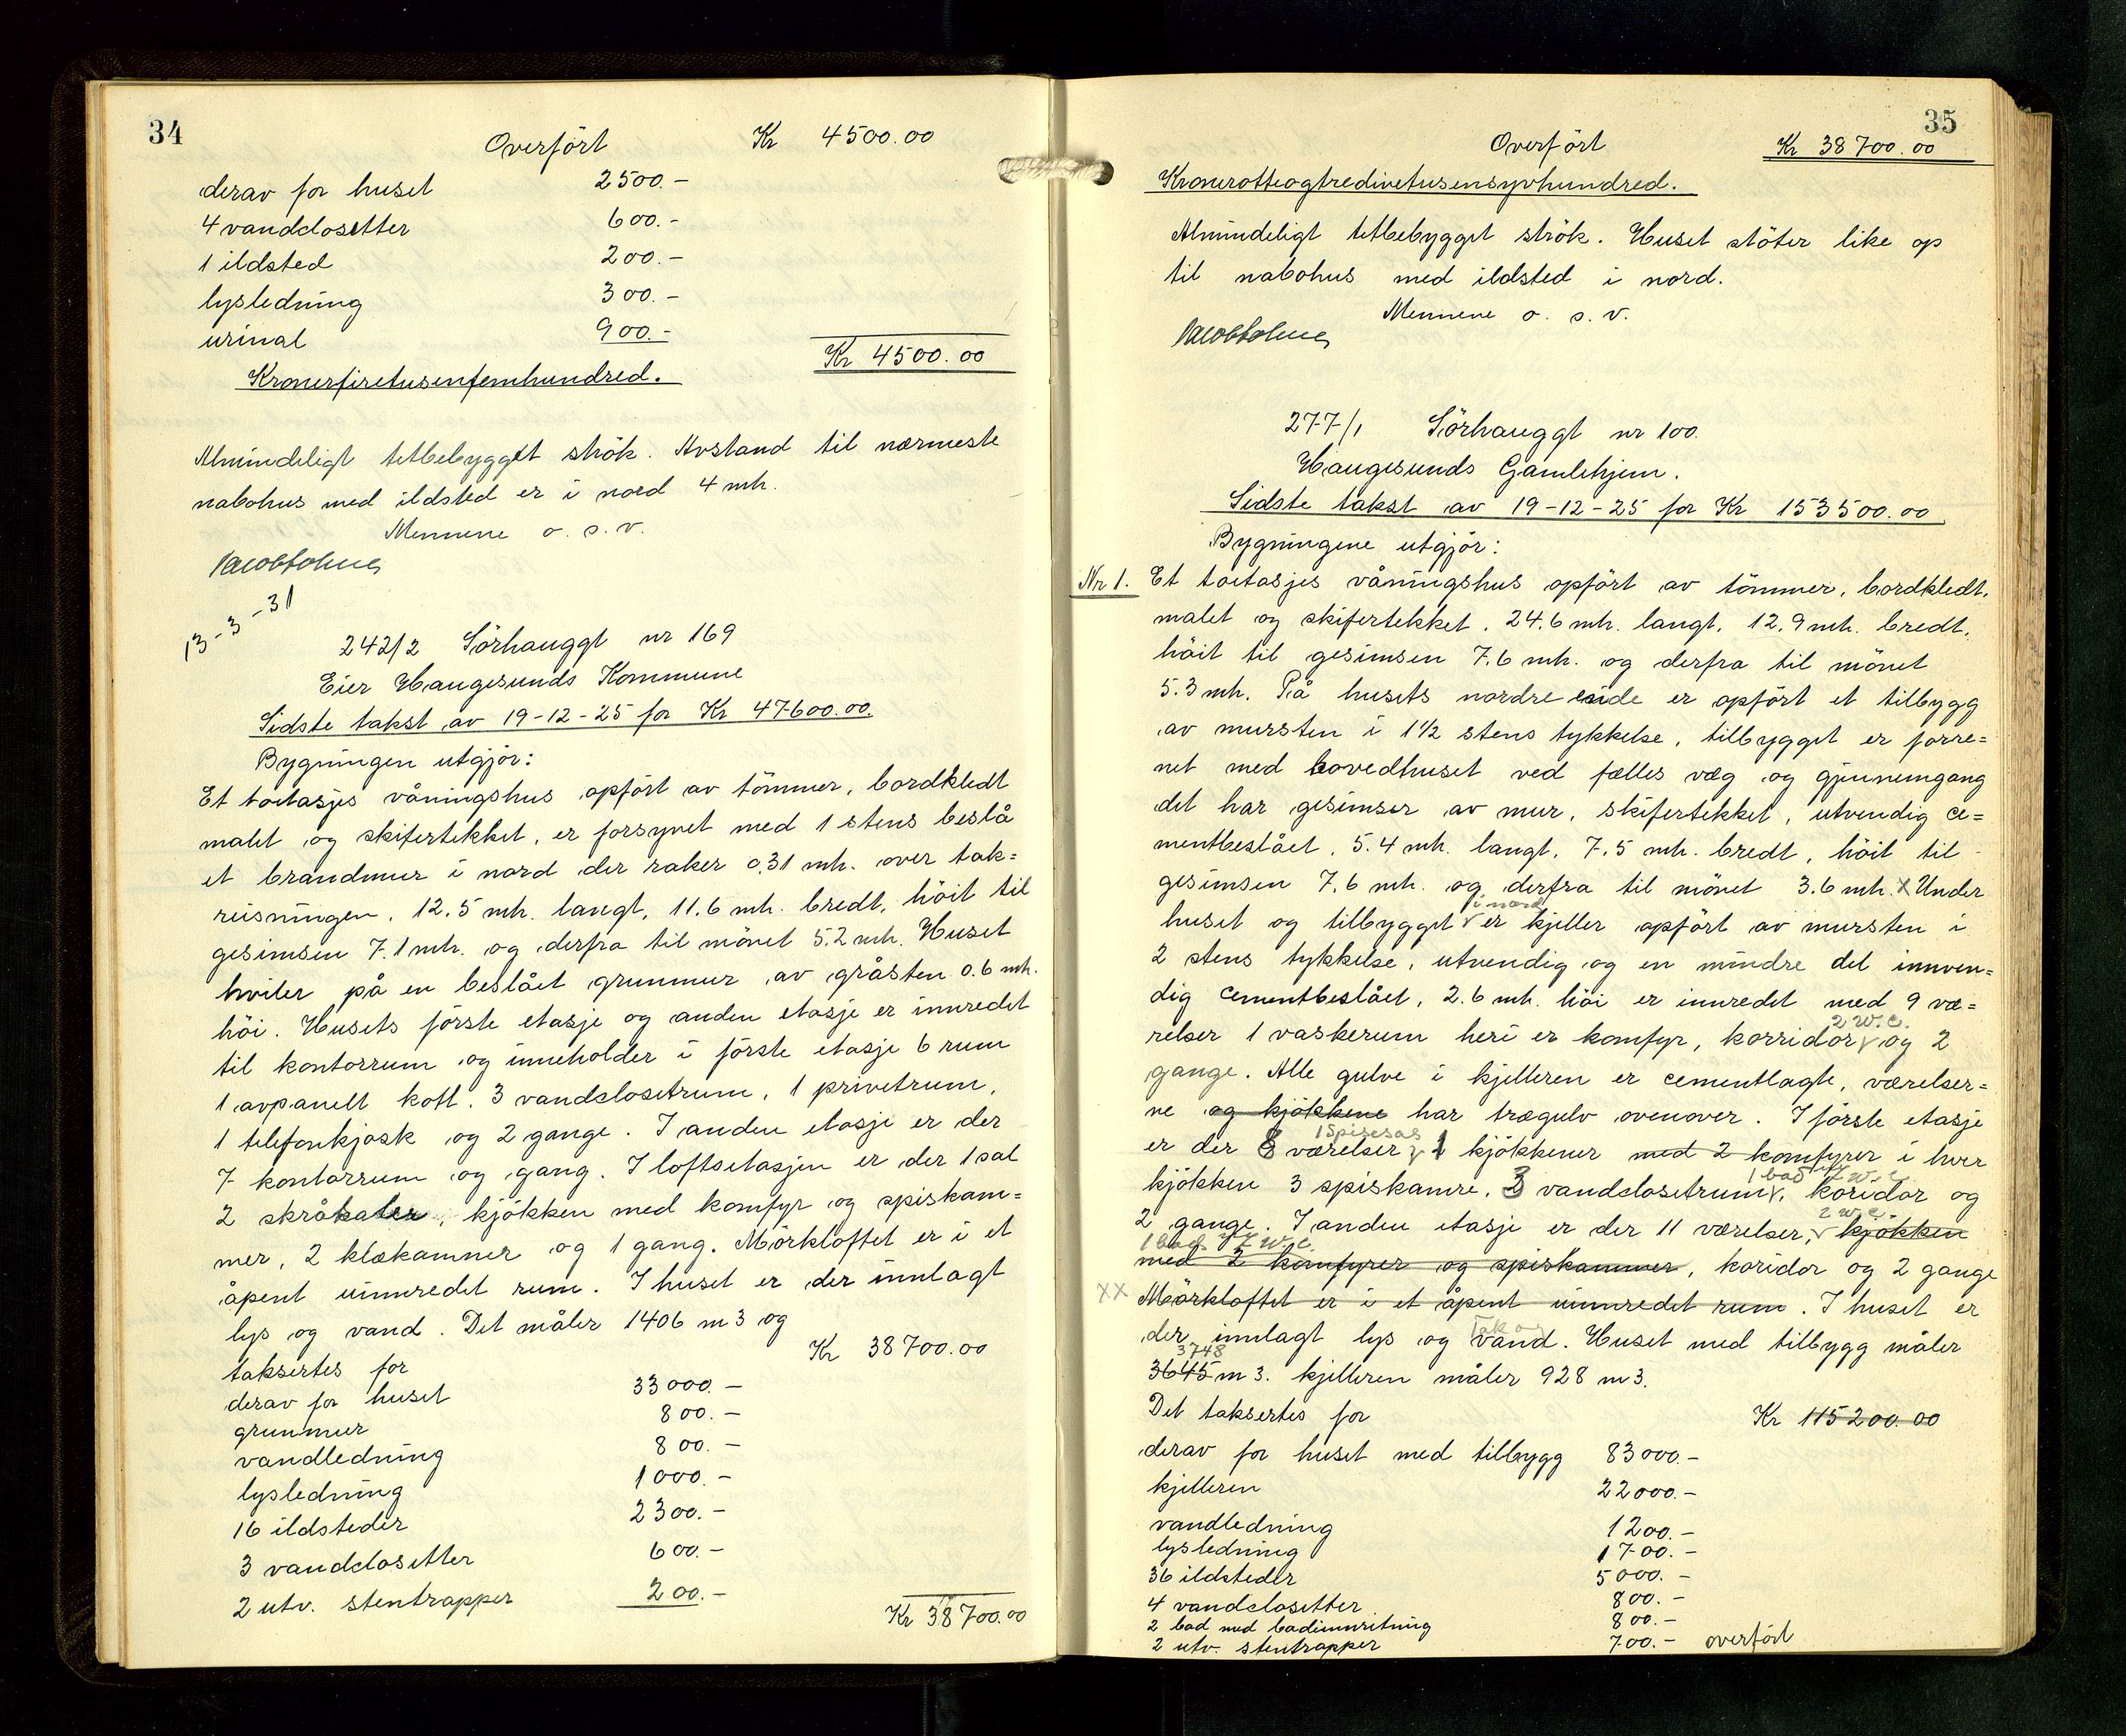 34
Overfört Kr 4500.00
derav for huset 2500.-
4 vandclosetter 600.-
1 ildsted 200.-
lysledning 300.-
urinal 900.-
Kr 4500.00
Kronerfiretusenfemhundred.
Almindeligt tetbebygget strök. Avstand til nærmeste
nabohus med ildsted er i nord 4 mh.
Mennene o. s. v.
13-3-31
242/2 Sörhauggt nr 169
Eier Haugesunds Kommune
Sidste takst av 19-12-25 for Kr 47600.00.
Bygningen utgjör:
Et toetasjes våningshus opfört av tömmer, bordkledt
malet og skifertekket, er forsynet med 1 stens beslå
et brandmur i nord der raker 0,31 mh. over tak=
reisningen. 12.5 mh. langt, 11.6 mh. bredt, höit til
gesimsen 7.1 mh. og derfra til mönet 5.2 mh. Huset
hviler på en beslået grunmur av gråsten 0.6 mh.
höi. Husets förste etasje og anden etasje er innredet
til kontorrum og inneholder i förste etasje 6 rum
1 avpanelt kott. 3 vandclosetrum, 1 privetrum,
1 telefonkjosk og 2 gange. I anden etasje er der
7 kontorrum og gang. I loftsetasjen er der 1 sal
2 skråkater, kjökken med komfyr og spiskam=
mer, 2 klækamner og 1 gang. Mörkloftet er i et
åpent uinnredet rum. I huset er der innlagt
lys og vand. Det måler 1406 m3 og
taksertes for Kr 38700.00
derav for huset 33000.-
grunmur 800.-
vandledning 800.-
lysledning 1000.-
16 ildsteder 2300.-
3 vandclosetter 600.-
2 utv. stentrapper 200.-
Kr 38700.00
35
Overfört Kr 38700.00
Kronerotteogtredivetusensyvhundred.
Almindeligt tetbebygget strök. Huset stöter like op
til nabohus med ildsted i nord.
Mennene o. s. v.
277/1 Sörhauggt nr 100.
Haugesunds Gamlehjem.
Sidste takst av 19-12-25 for Kr 153500.00
Bygningene utgjör:
Nr 1. Et toetasjes våningshus opfört av tömmer, bordkledt,
malet og skifertekket. 24.6 mh. langt, 12.9 mh. bredt,
höit til gesimsen 7.6 mh. og derfra til mönet
5.3 mh. På husets nordre ende er opfört et tilbygg
av mursten i 1 1/2 stens tykkelse, tilbygget er forre=
net med hovedhuset ved fælles væg og gjennemgang
det har gesimser av mur, skifertekket, utvendig ce=
mentbeslået, 5.4 mh. langt, 7.5 mh. bredt, höit til
gesimsen 7.6 mh. og derfra til mönet 3.6 mh. x Under
i nord
huset og tilbygget v er kjeller opfört av mursten i
2 stens tykkelse, utvendig og en mindre del innven=
dig cementbeslået, 2.6 mh. höi er innredet med 9 væ=
2 W.C.
relser 1 vaskerum heri er komfyr, korridor v og 2
gange. Alle gulve i kjelleren er cementlagte, værelser=
ne og kjökkene har trægulv ovenover. I förste etasje
1 Spisesal
er der 8 værelser v 1 kjökkener med 2 komfyrer i hver
1 bad 7 W.C.
kjökken 3 spiskamre, 3 vandclosetrum v, koridor og
2 W.C.
2 gange. I anden etasje er der 11 værelser, v kjökken
1 bad 7 W.C.
med 2 komfyrer og spiskammer, koridor og 2 gange
xx Mörkloftet er i et åpent uinnredet rum. I huset er
Tak og
der innlagt lys og vand. Huset med tilbygg måler
3748
3645 m3. kjelleren måler 928 m3.
Det taksertes for Kr 115200.00
derav for huset med tilbygg 83000.-
kjelleren 22000.-
vandledning 1200.-
lysledning 1700.-
36 ildsteder 5000.-
4 vandclosetter 800.-
2 bad med badeinnretning 800.-
2 utv. stentrapper 700.- overfört